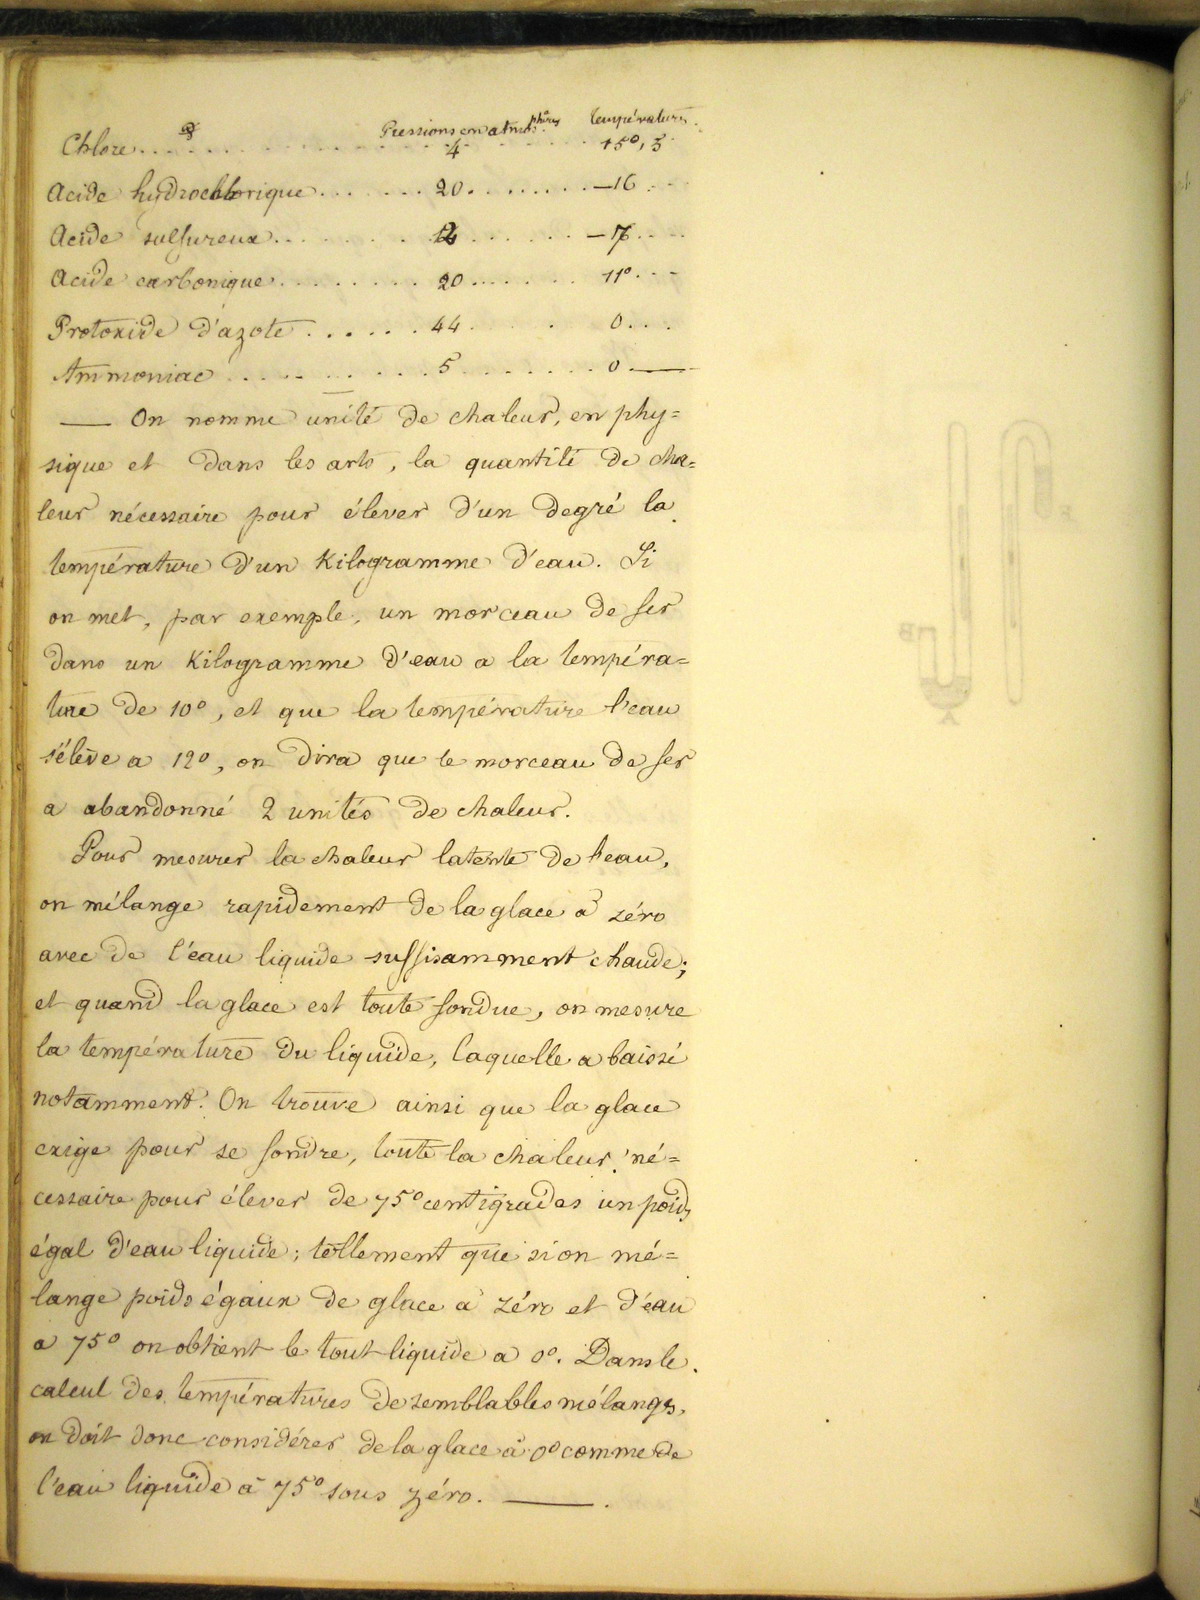 Pressions en atmosphères. Températures.
Chlore . . . . . 4 . . . . . 15°,5
Acide hydrochlorique . . . . . 20 . . . . . -16 . . .
Acide sulfureux . . . . . . . . . . -7 . . .
Acide carbonique . . . . . 20 . . . . . 11° . . .
Protoxide d'azote . . . . . 44 . . . . . 0 . . .
Ammoniac . . . . . 5 . . . . . 0 —
— On nomme unité de chaleur, en phy=
sique et dans les arts, la quantité de cha=
leur nécessaire pour élever d'un degré la
température d'un Kilogramme d'eau. Si
on met, par exemple, un morceau de fer
dans un Kilogramme d'eau a la tempéra=
ture de 10°, et que la température l'eau
s'élève a 12°, on dira que le morceau de fer
a abandonné 2 unités de chaleur.
Pour mesurer la chaleur latente de l'eau,
on mélange rapidement de la glace à zéro
avec de l'eau liquide suffisamment chaude;
et quand la glace est toute fondue, on mesure
la température du liquide, laquelle a baissé
notamment. On trouve ainsi que la glace
exige pour se fondre, toute la chaleur né=
cessaire pour élever de 75° centigrades un poids
égal d'eau liquide; tellement que si on mé=
lange poids égaux de glace à zéro et d'eau
a 75° on obtient le tout liquide a 0°. Dans le
calcul des températures de semblables mélanges,
on doit donc considérer de la glace à 0° comme de
l'eau liquide à 75° sous zéro. —